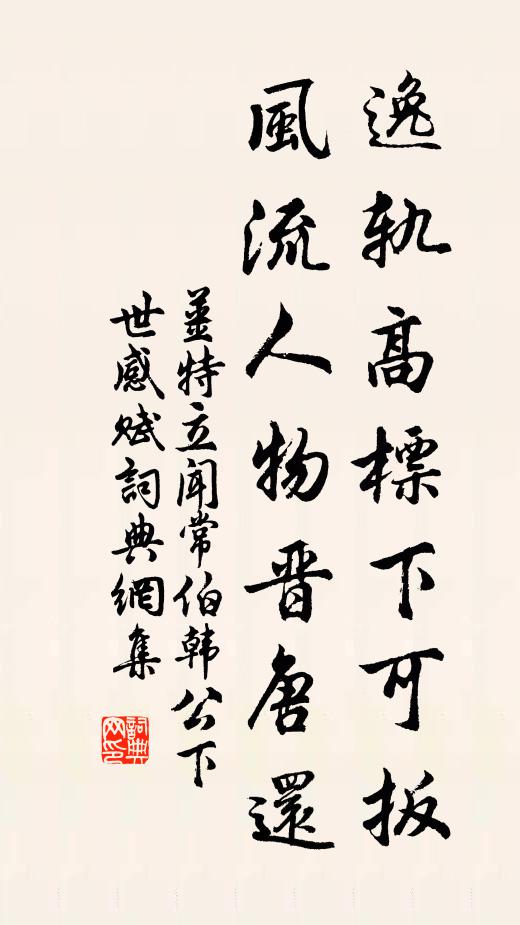 逸軌高標下可扳
風流人物晉唐還
薑特立聞常伯韩公下
世感賦詞典網集
詞典
网印